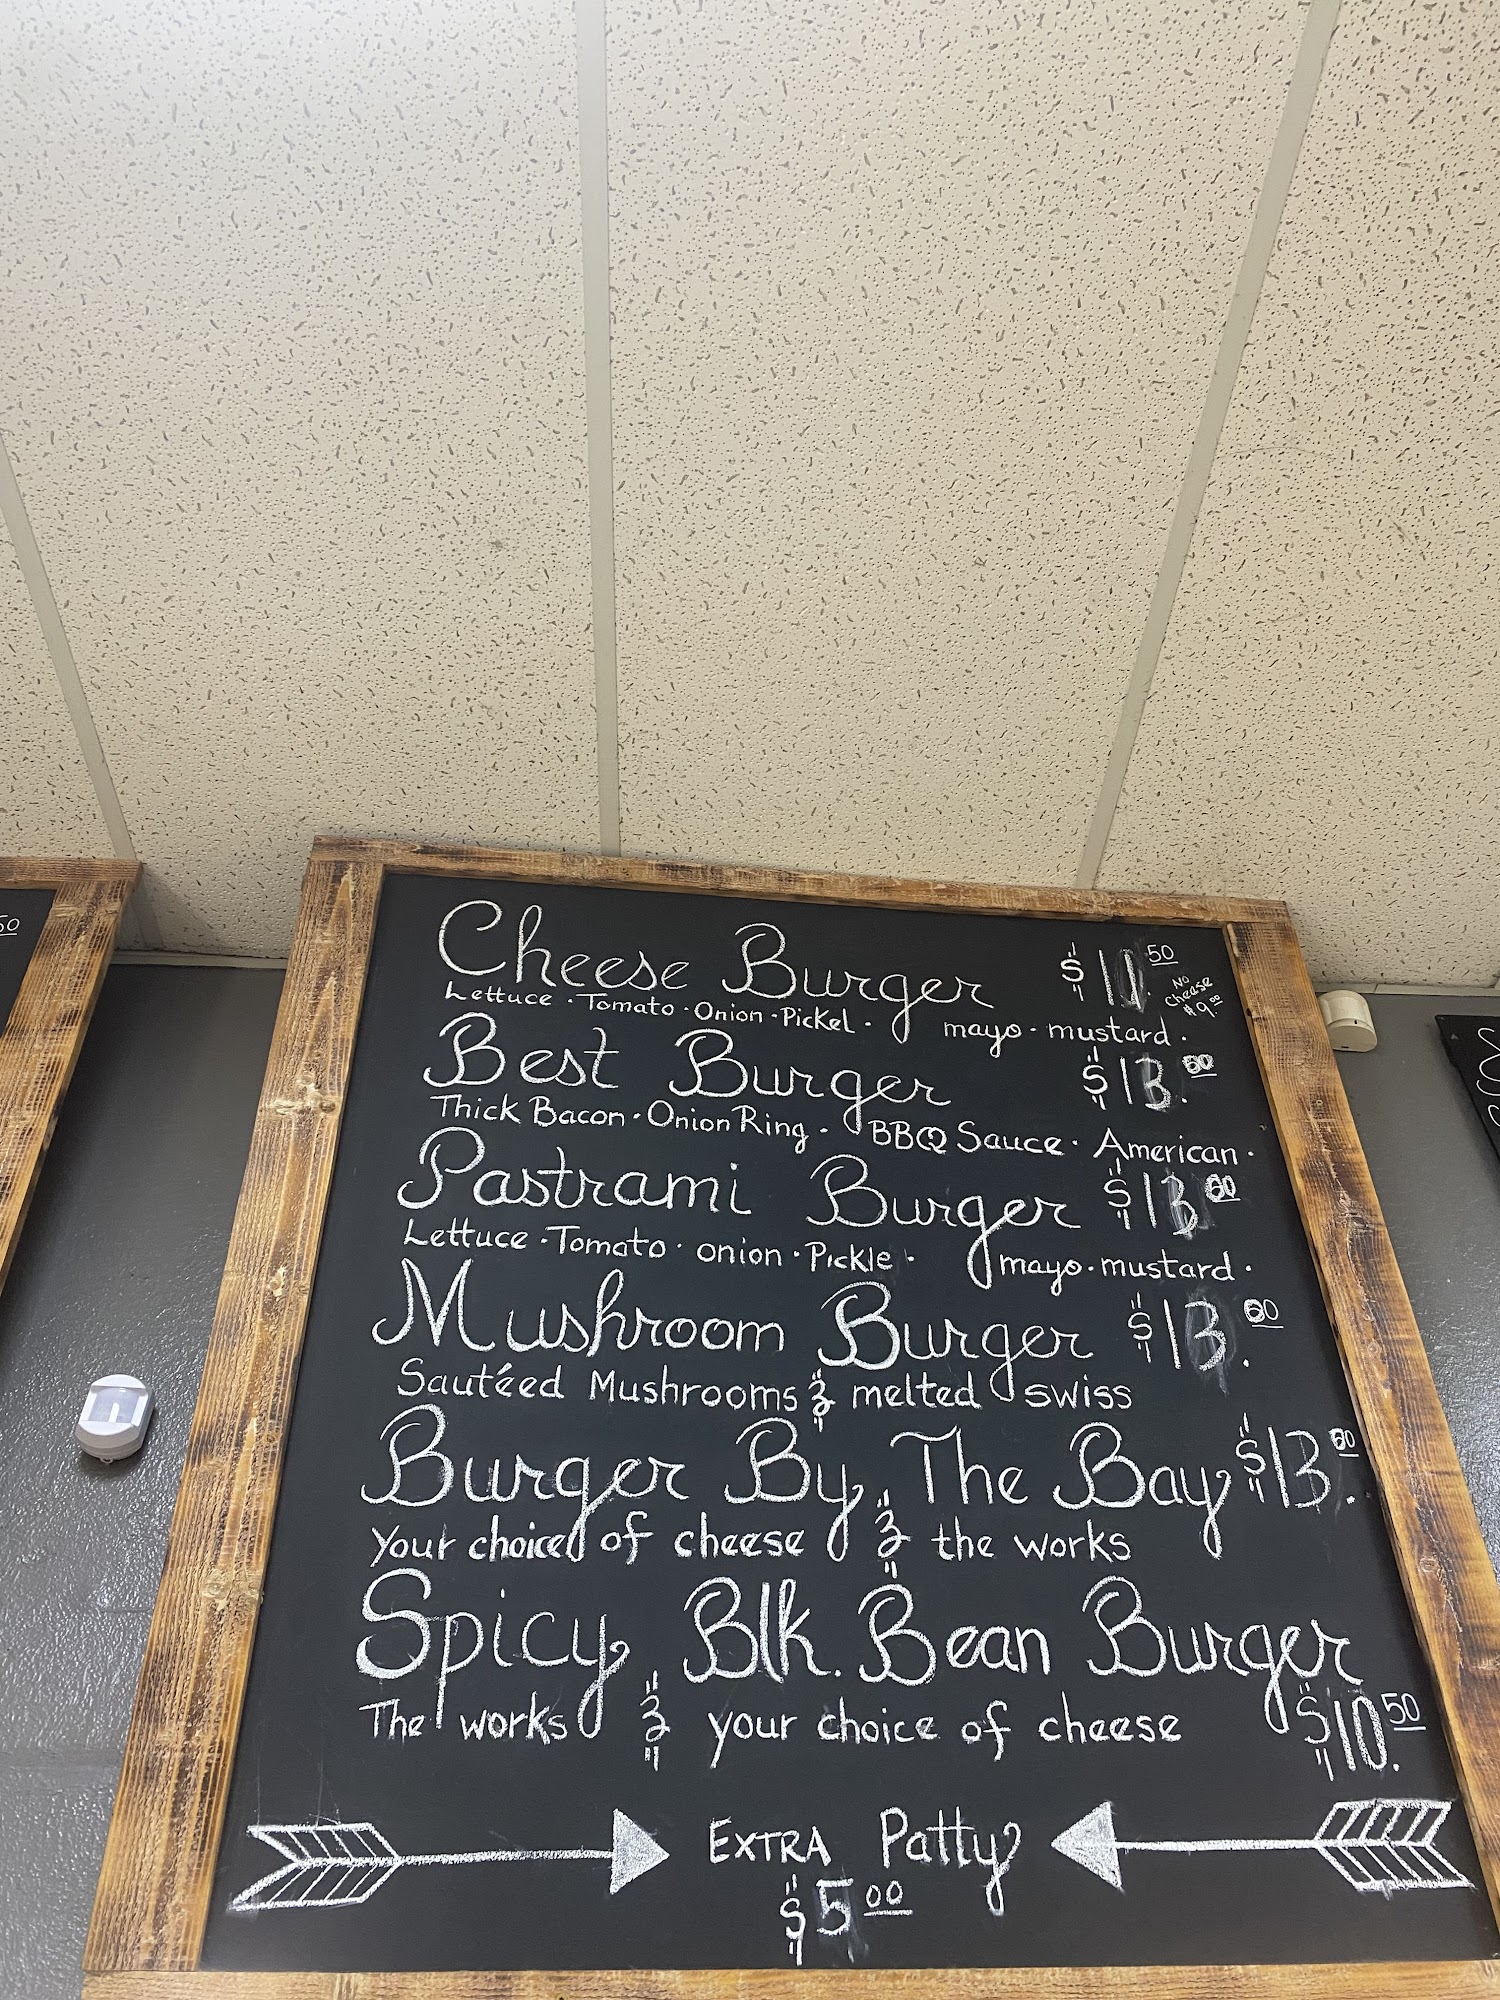 Cheese Burger $11.50
No Cheese $9.00
Lettuce · Tomato · Onion · Pickel · mayo · mustard ·
Best Burger $13.
Thick Bacon · Onion Ring · BBQ Sauce · American ·
Pastrami Burger $13.
Lettuce · Tomato · onion · Pickle · mayo · mustard ·
Mushroom Burger $13.
Sautéed Mushrooms & melted swiss
Burger By The Bay $13.
your choice of cheese & the works
Spicy Blk. Bean Burger
The works & your choice of cheese $10.50
EXTRA Patty
$5.00